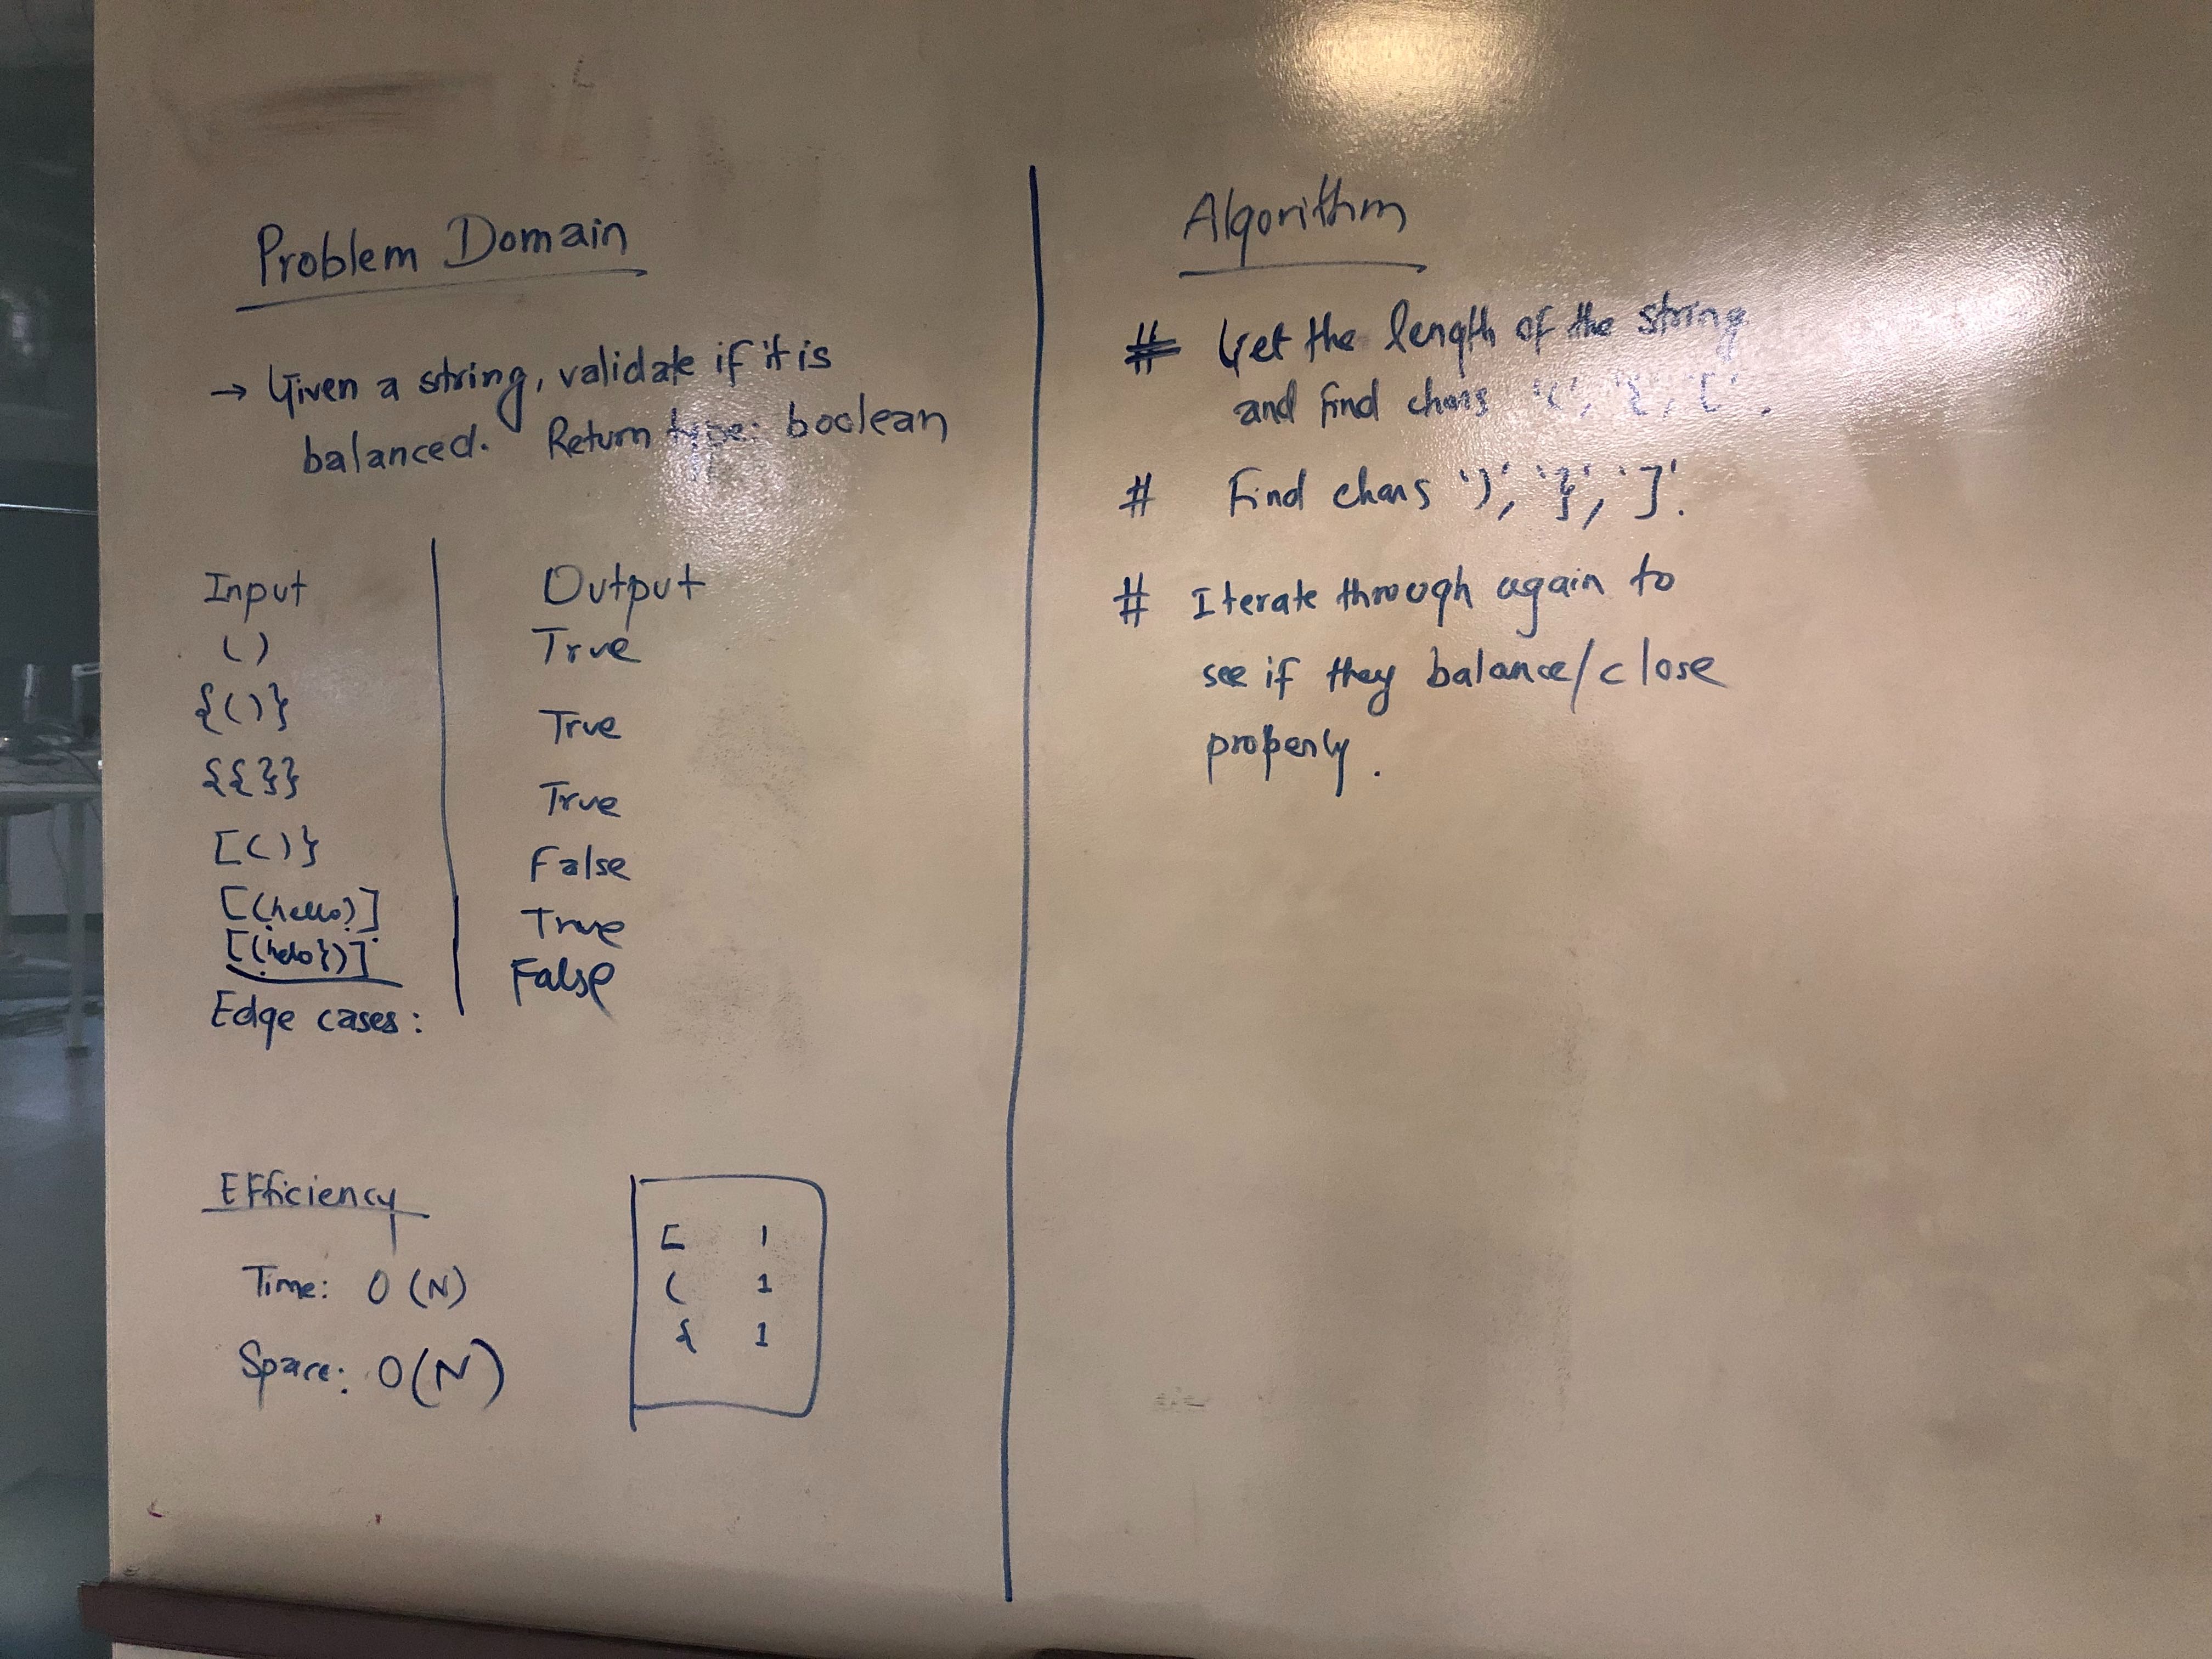 Problem Domain
→ Given a string, validate if it is
balanced. Return type: boolean
Input | Output
() | True
{()} | True
{{}} | True
[()} | False
[(hello)] | True
[(helo})] | False
Edge cases:
Efficiency
Time: O(N)
Space: O(N)
[ 1
( 1
{ 1
Algorithm
# Get the length of the string
and find chars '(', '{', '['.
# Find chars ')', '}', ']'.
# Iterate through again to
see if they balance/close
properly.